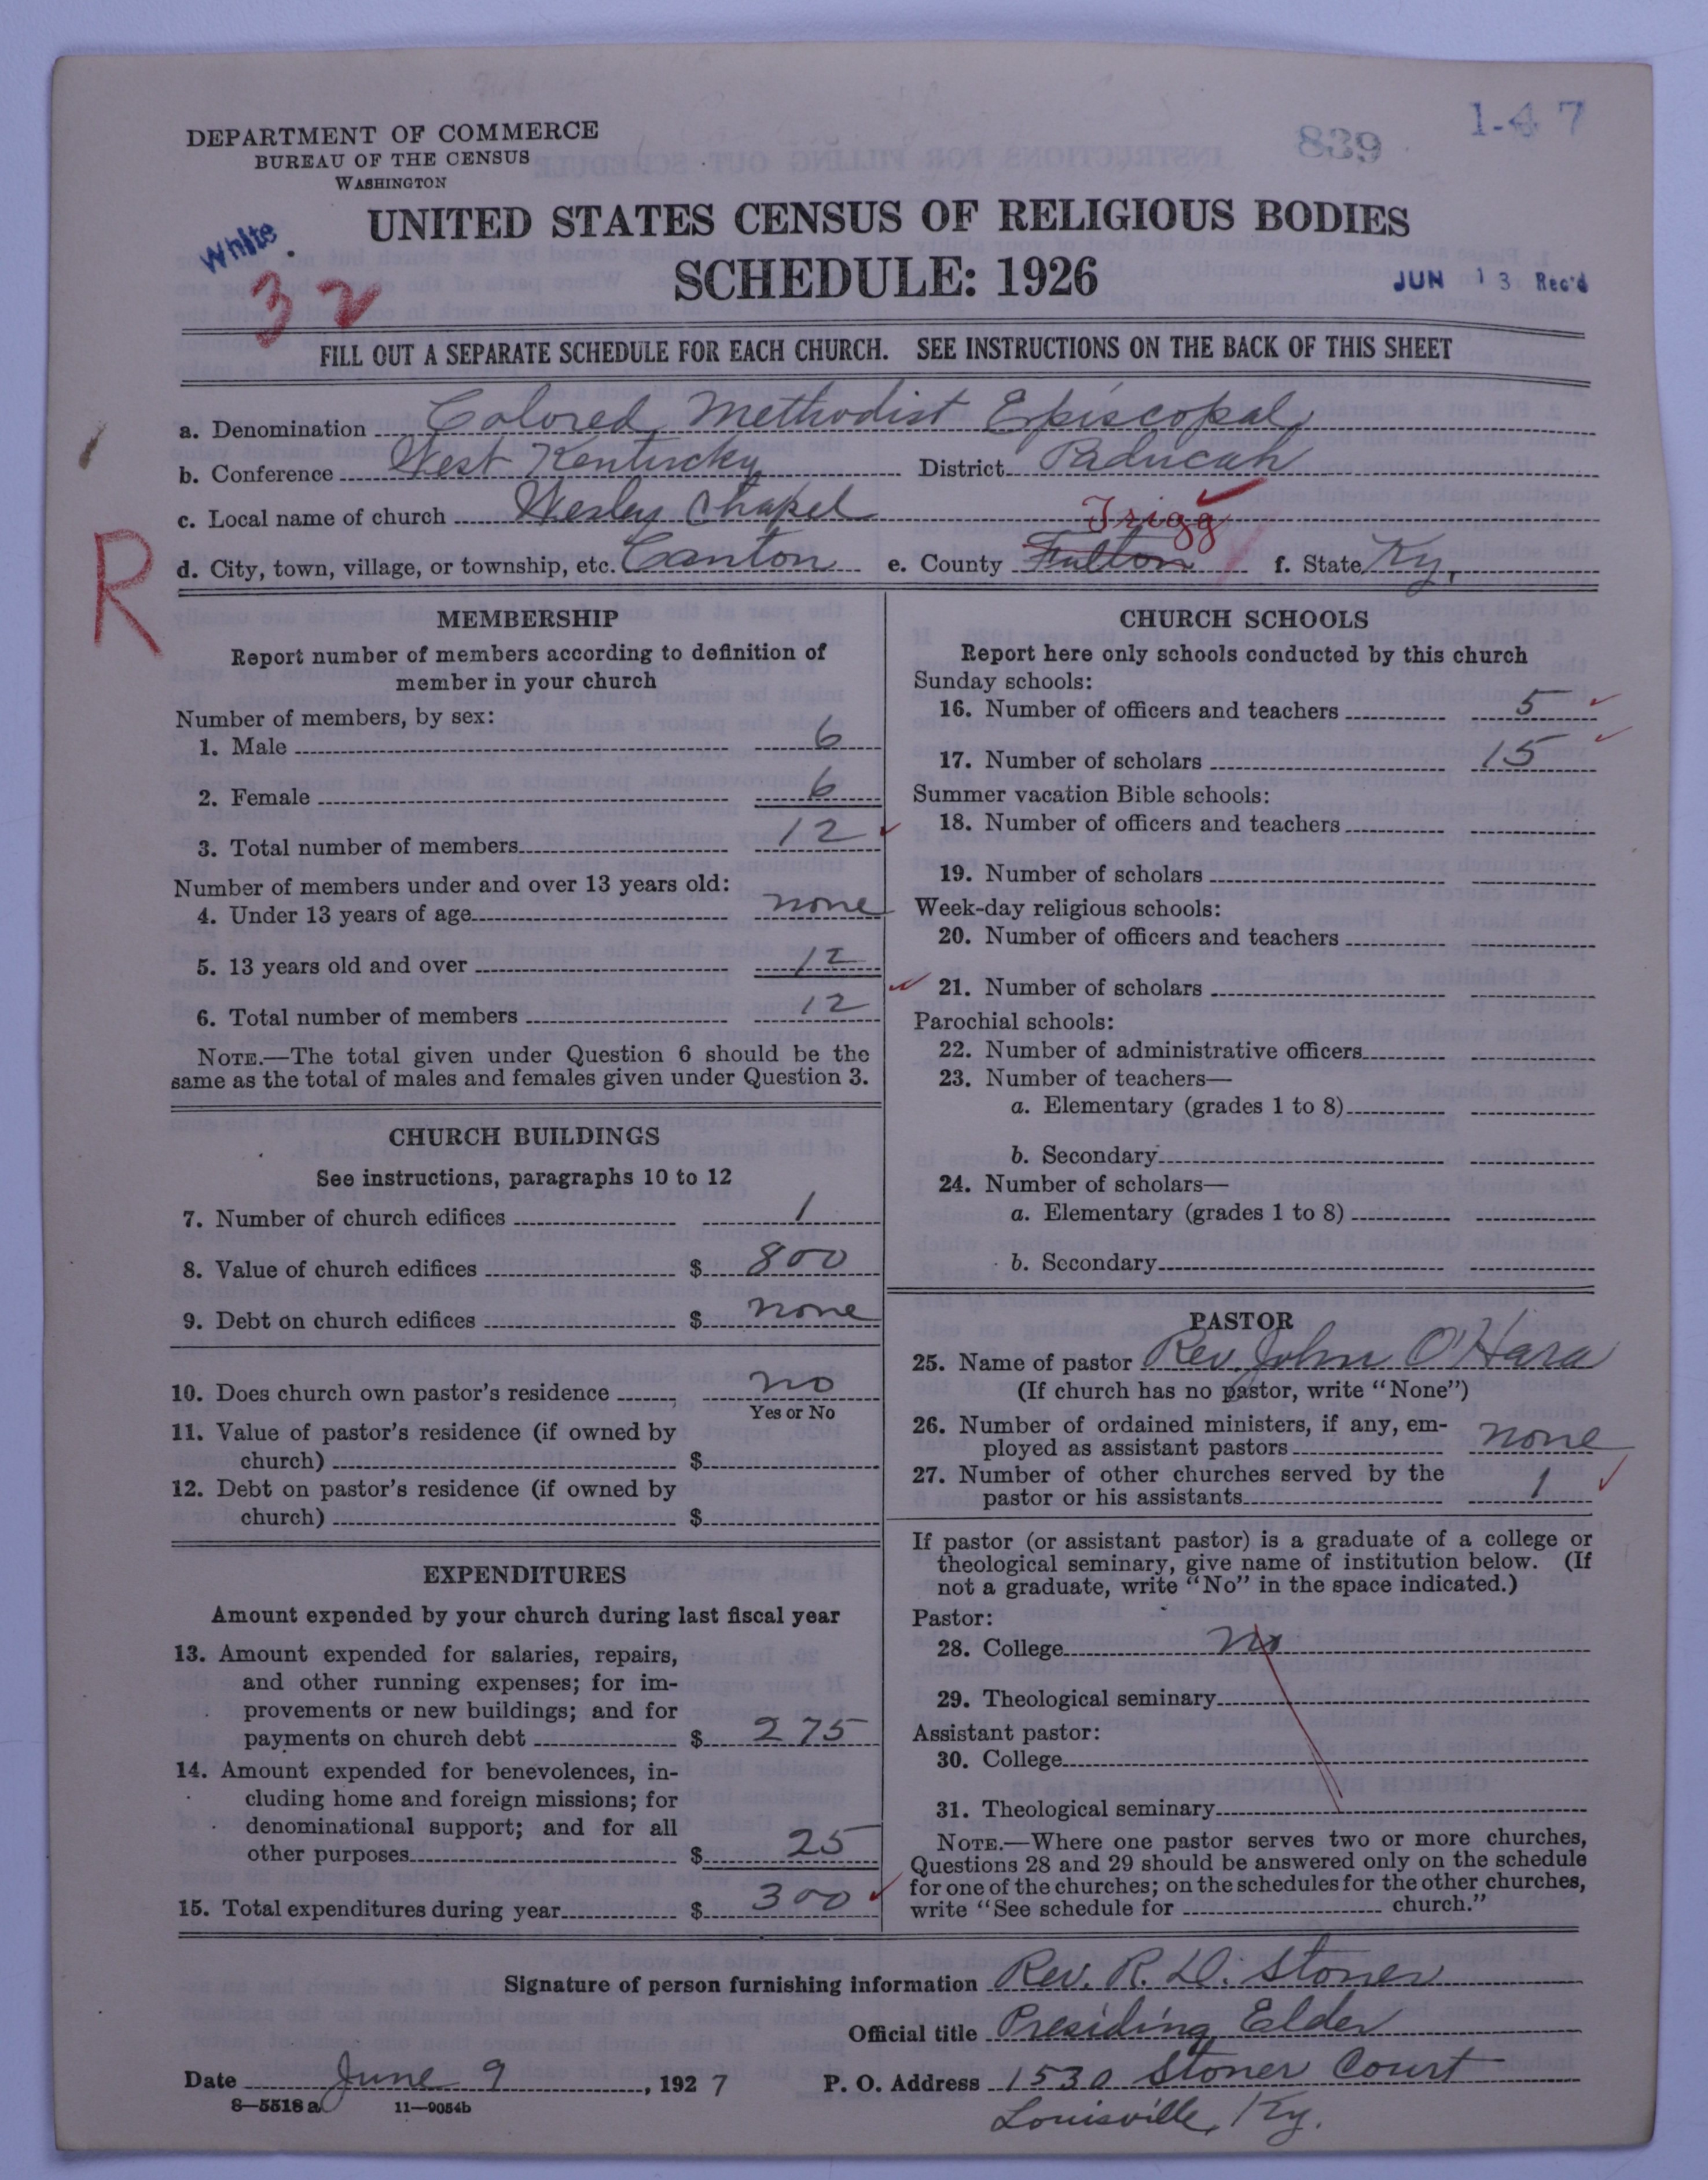 DEPARTMENT OF COMMERCE
BUREAU OF THE CENSUS
WASHINGTON
839
1-47
White.
32
UNITED STATES CENSUS OF RELIGIOUS BODIES
SCHEDULE: 1926
JUN 13 Rec'd
FILL OUT A SEPARATE SCHEDULE FOR EACH CHURCH. SEE INSTRUCTIONS ON THE BACK OF THIS SHEET
a. Denomination Colored Methodist Episcopal
b. Conference West Kentucky District Paducah
c. Local name of church Wesley Chapel
Trigg
R
d. City, town, village, or township, etc. Canton e. County Fulton f. State Ky.
MEMBERSHIP
Report number of members according to definition of
member in your church
Number of members, by sex:
1. Male 6
2. Female 6
3. Total number of members 12
Number of members under and over 13 years old:
4. Under 13 years of age none
5. 13 years old and over 12
6. Total number of members 12
NOTE.—The total given under Question 6 should be the
same as the total of males and females given under Question 3.
CHURCH BUILDINGS
See instructions, paragraphs 10 to 12
7. Number of church edifices 1
8. Value of church edifices $ 800
9. Debt on church edifices $ none
10. Does church own pastor's residence no
Yes or No
11. Value of pastor's residence (if owned by
church) $
12. Debt on pastor's residence (if owned by
church) $
EXPENDITURES
Amount expended by your church during last fiscal year
13. Amount expended for salaries, repairs,
and other running expenses; for im-
provements or new buildings; and for
payments on church debt $ 275
14. Amount expended for benevolences, in-
cluding home and foreign missions; for
denominational support; and for all
other purposes $ 25
15. Total expenditures during year $ 300
CHURCH SCHOOLS
Report here only schools conducted by this church
Sunday schools:
16. Number of officers and teachers 5
17. Number of scholars 15
Summer vacation Bible schools:
18. Number of officers and teachers
19. Number of scholars
Week-day religious schools:
20. Number of officers and teachers
21. Number of scholars
Parochial schools:
22. Number of administrative officers
23. Number of teachers—
a. Elementary (grades 1 to 8)
b. Secondary
24. Number of scholars—
a. Elementary (grades 1 to 8)
b. Secondary
PASTOR
25. Name of pastor Rev. John O'Hara
(If church has no pastor, write "None")
26. Number of ordained ministers, if any, em-
ployed as assistant pastors none
27. Number of other churches served by the
pastor or his assistants 1
If pastor (or assistant pastor) is a graduate of a college or
theological seminary, give name of institution below. (If
not a graduate, write "No" in the space indicated.)
Pastor:
28. College no
29. Theological seminary
Assistant pastor:
30. College
31. Theological seminary
NOTE.—Where one pastor serves two or more churches,
Questions 28 and 29 should be answered only on the schedule
for one of the churches; on the schedules for the other churches,
write "See schedule for church."
Signature of person furnishing information Rev. R. D. Stoner
Official title Presiding Elder
Date June 9, 1927 P. O. Address 1530 Stoner Court
8-5518a 11-9054b
Louisville, Ky.